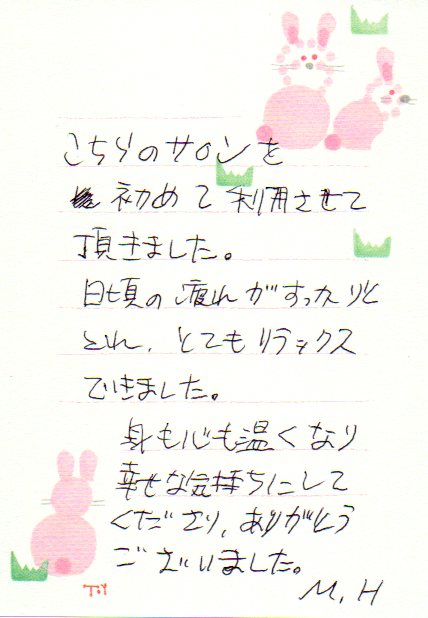 こちらのサロンを
初めて利用させて
頂きました。
日頃の疲れがすっかりと
とれ、とてもリラックス
できました。
身も心も温くなり
幸せな気持ちにして
くださり、ありがとう
ございました。
M.H
T.Y